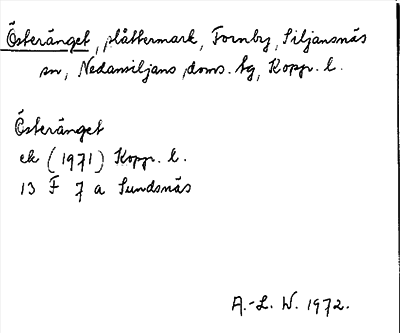 Österänget, slåttermark, Fornby, Siljansnäs
sn, Nedansiljans doms. tg, Kopp. l.
Österänget
ek (1971) Kopp. l.
13 F 7 a Sundsnäs
A.-L. W. 1972.